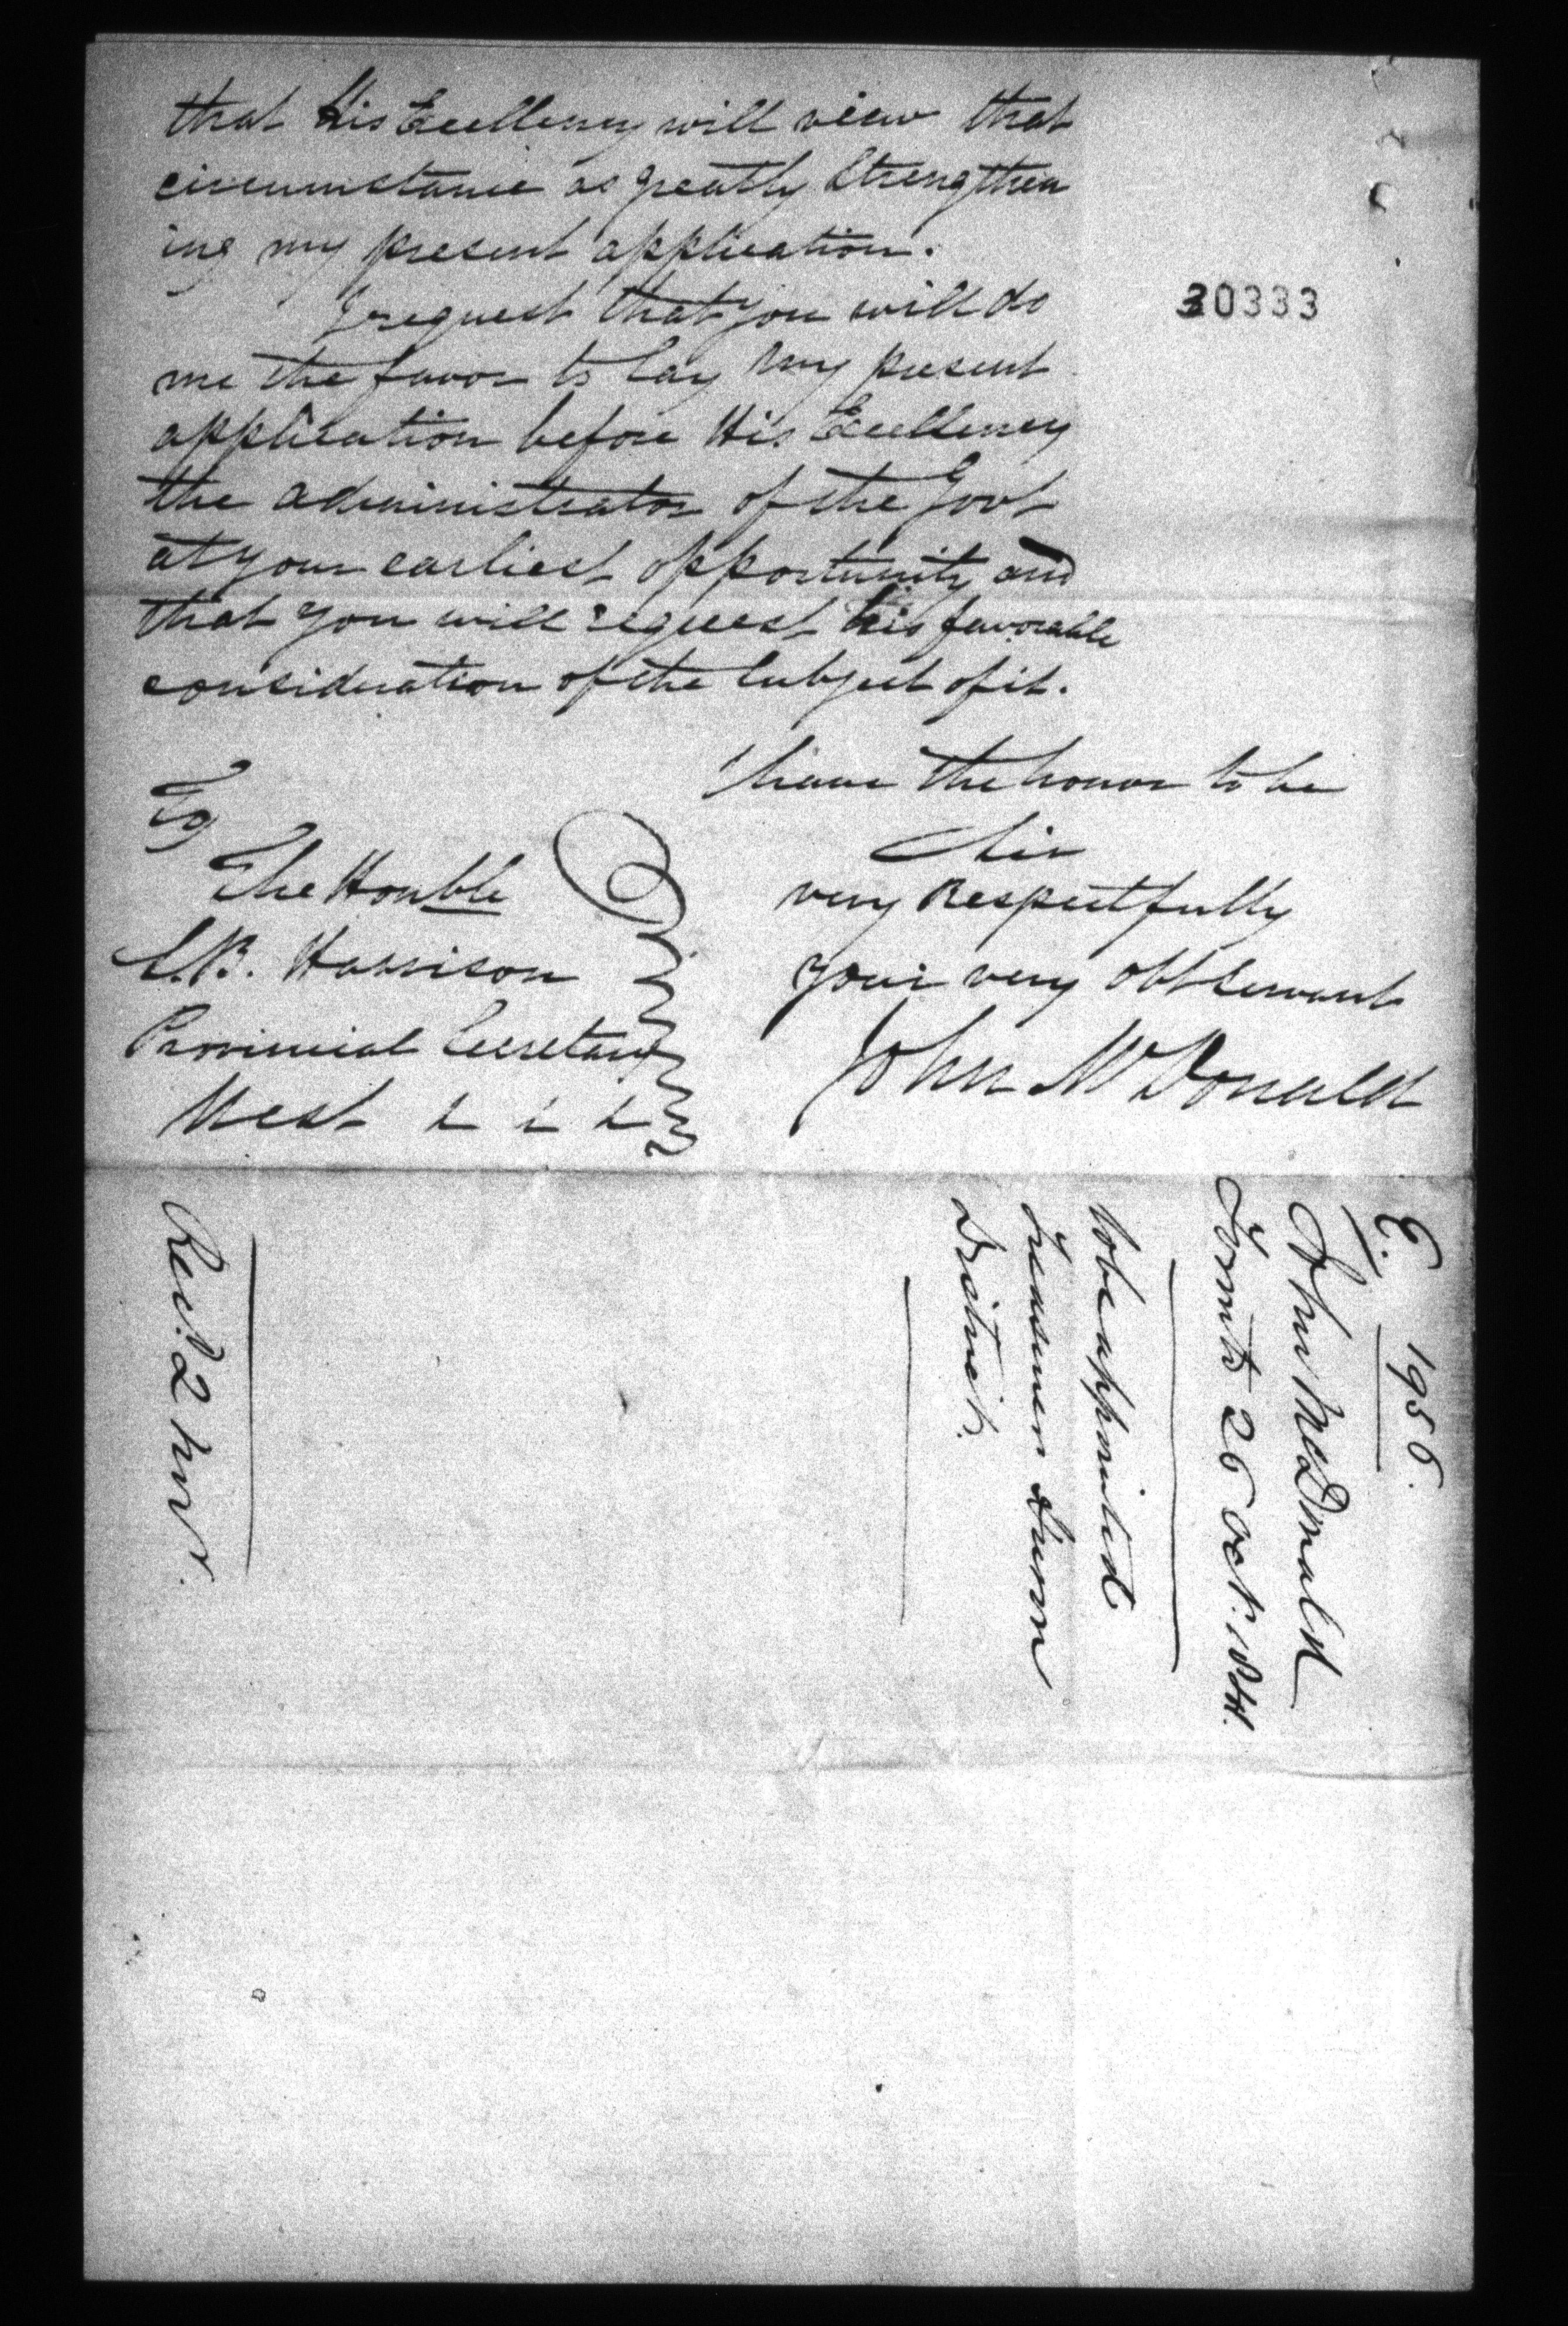 that His Excellency will view that
circumstance as greatly strengthen
ing my present application.
I request that you will do
me the favor to lay my present
application before His Excellency
the administrator of the Govt
at your earliest opportunity and
that you will request his favorable
consideration of the subject of it.
30333
I have the honor to be
Sir
very Respectfully
your very obt servant
John McDonald
To
The Honble
S.B. Harrison
Provincial Secretary
West
E. 1956.
John McDonald
Toronto 26 Oct. 1841.
to be appointed
Treasurer Huron
District.
Rec. 2 Nov.